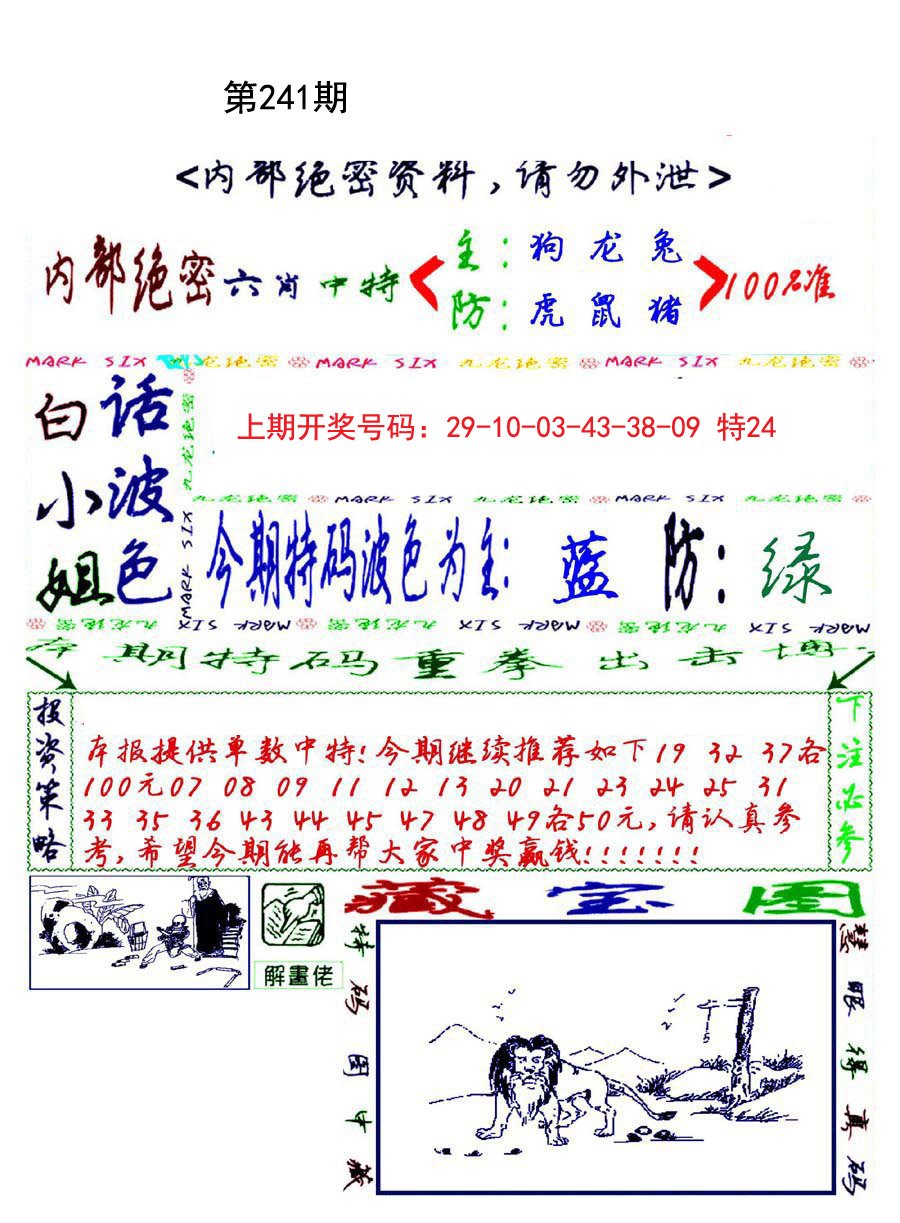 第241期
<内部绝密资料,请勿外泄>
内部绝密六肖中特
主:狗 龙 兔
防:虎 鼠 猪
100%准
MARK SIX 九龙绝密 MARK SIX 九龙绝密 MARK SIX 九龙绝密
白话
小波
姐色
九龙绝密 MARK SIX
上期开奖号码：29-10-03-43-38-09 特24
九龙绝密 MARK SIX 九龙绝密 MARK SIX 九龙绝密
今期特码波色为主: 蓝 防: 绿
九龙绝密 MARK SIX 九龙绝密 MARK SIX 九龙绝密 MARK SIX
本期特码重拳出击博
投资策略
本报提供单数中特!今期继续推荐如下19 32 37各
100元07 08 09 11 12 13 20 21 23 24 25 31
33 35 36 43 44 45 47 48 49各50元,请认真参
考,希望今期能再帮大家中奖赢钱!!!!!!!
下注必参
解畫佬
藏宝图
特码图中藏
慧眼得真码